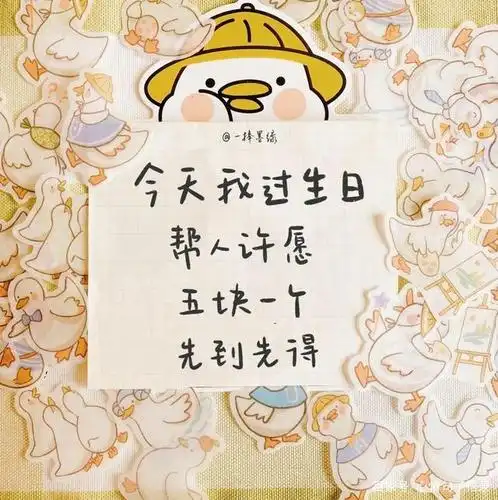 @一捧墨缘
今天我过生日
帮人许愿
五块一个
先到先得